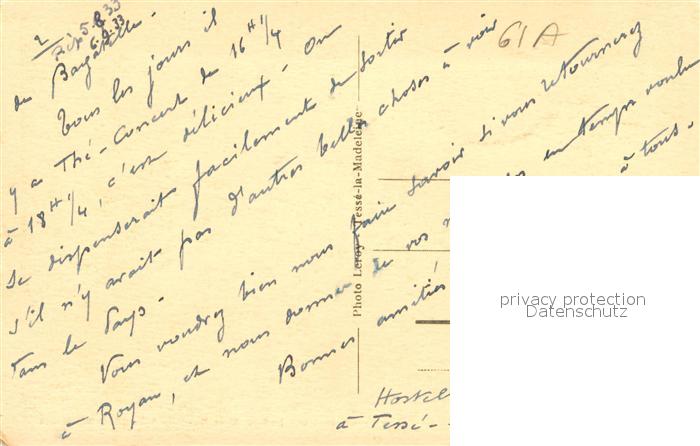 2
Rép 5.8.33
6.9.33
61A
de Bagatelle.
Tous les jours il
y a Thé-Concert de 16 H 1/4
à 18 H 1/4, c'est délicieux. On
se dispenserait facilement de sortir
s'il n'y avait pas d'autres belles choses à voir
dans le Pays.
Vous voudrez bien nous faire savoir si vous retournerez
à Royan, et nous donner de vos en temps voulu
Bonnes amitiés à tous.
Hostel
à Tessé-
Photo Leroy, Tessé-la-Madeleine
privacy protection
Datenschutz